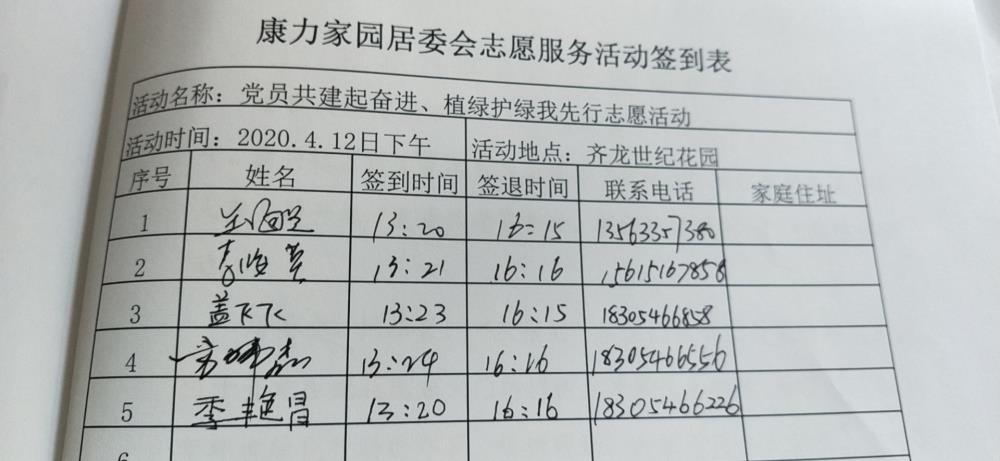 康力家园居委会志愿服务活动签到表
活动名称：党员共建起奋进、植绿护绿我先行志愿活动
活动时间：2020.4.12日下午 活动地点：齐龙世纪花园
序号 姓名 签到时间 签退时间 联系电话 家庭住址
1 13:20 16:15 13563357380
2 13:21 16:16 15615167858
3 盖飞飞 13:23 16:15 18305466858
4 13:24 16:16 18305466556
5 季艳昌 13:20 16:16 18305466226
6